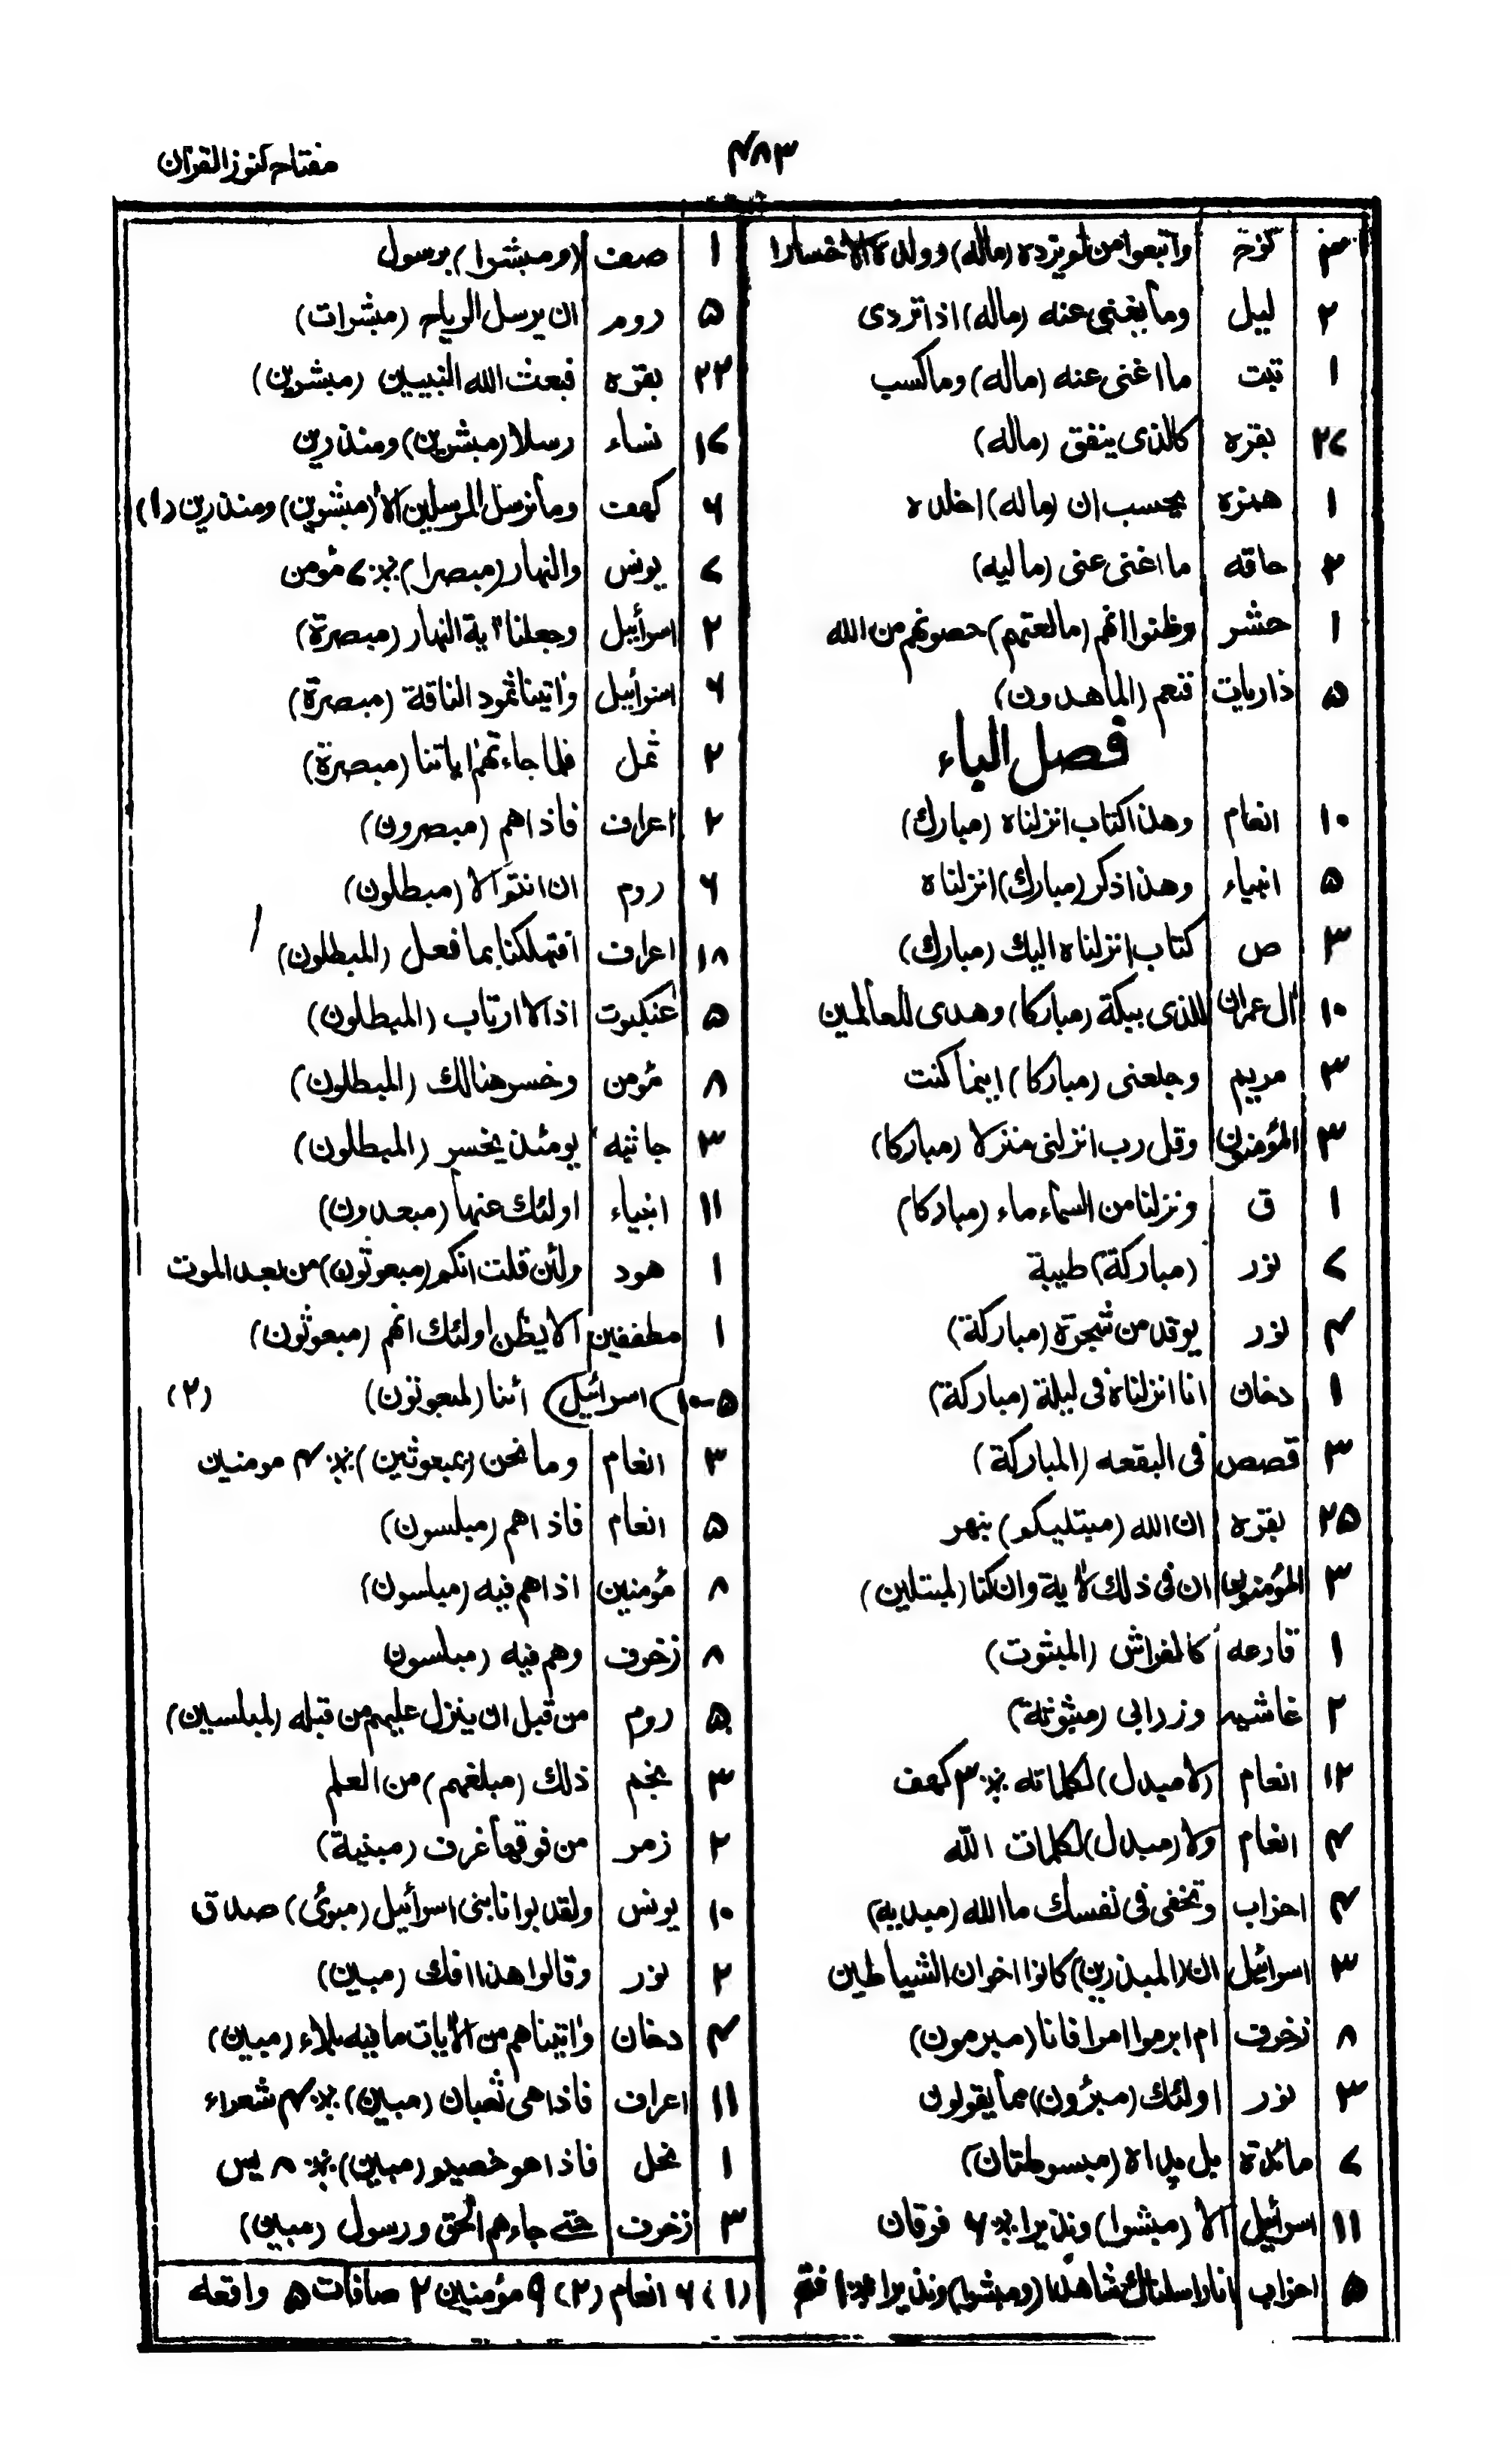 مفتاح كنوز القرآن
۴۸۳
نوح واتبعوا من لم يزده (ماله) وولده الا خسارا
۲ ليل وما يغنى عنه (ماله) اذا تردى
۱ تبت ما اغنى عنه (ماله) وما كسب
۲۷ بقره كالذى ينفق (ماله)
۱ همزه يحسب ان (ماله) اخلده
۲ حاقه ما اغنى عنى (ماليه)
۱ حشر وظنوا انهم (مانعتهم) حصونهم من الله
۵ ذاريات فنعم (الماهدون)
فصل الباء
۱۰ انعام وهذا كتاب انزلناه (مبارك)
۵ انبياء وهذا ذكر (مبارك) انزلناه
۳ ص كتاب انزلناه اليك (مبارك)
۱۰ آل عمران للذى ببكة (مباركا) وهدى للعالمين
۳ مريم وجلعنى (مباركا) اينما كنت
۳ المؤمنون وقل رب انزلنى منزلا (مباركا)
۱ ق ونزلنا من السماء ماء (مباركا)
۷ نور (مباركة) طيبة
۴ نور يوقد من شجرة (مباركة)
۱ دخان انا انزلناه فى ليلة (مباركة)
۳ قصص فى البقعه (المباركة)
۲۵ بقره ان الله (مبتليكم) بنهر
۳ المؤمنون ان فى ذلك لآية وان كنا (لمبتلين)
۱ قارعه كالفراش (المبثوت)
۲ غاشيه وزرابى (مبثوثة)
۱۲ انعام (لا مبدل) لكلماته ٪ ۳ كهف
۴ انعام ولا (مبدل) لكلمات الله
۴ احزاب وتخفى فى نفسك ما الله (مبديه)
۳ اسرائيل ان (المبذرين) كانوا اخوان الشياطين
۸ زخرف ام ابرموا امرا فانا (مبرمون)
۳ نور اولئك (مبرؤن) مما يقولون
۷ مائدة بل يداه (مبسوطتان)
۱۱ اسرائيل الا (مبشرا) ونذيرا ٪ ۶ فرقان
۵ احزاب انا ارسلناك شاهدا (ومبشرا) ونذيرا ٪ ۱ فتح
۱ صف (ومبشرا) برسول
۵ روم ان يرسل الرياح (مبشرات)
۲۲ بقره فبعث الله النبيين (مبشرين)
۱۷ نساء رسلا (مبشرين) ومنذرين
۶ كهف وما نرسل المرسلين الا (مبشرين) ومنذرين (۱)
۷ يونس والنهار (مبصرا) ٪ ۷ مؤمن
۲ اسرائيل وجعلنا آية النهار (مبصرة)
۶ اسرائيل واتينا ثمود الناقة (مبصرة)
۲ نمل فلما جاءتهم اياتنا (مبصرة)
۲ اعراف فاذا هم (مبصرون)
۶ روم ان انتم الا (مبطلون)
۱۸ اعراف افتهلكنا بما فعل (المبطلون)
۵ عنكبوت اذا لا ارتاب (المبطلون)
۸ مؤمن وخسر هنالك (المبطلون)
۳ جاثيه يومئذ يخسر (المبطلون)
۱۱ انبياء اولئك عنها (مبعدون)
۱ هود ولئن قلت انكم (مبعوثون) من بعد الموت
۱ مطففين الا يظن اولئك انهم (مبعوثون)
۵-۱۰ (اسرائيل) أئنا (لمبعوثون) (۲)
۳ انعام وما نحن (بمبعوثين) ٪ ۴ مومنين
۵ انعام فاذا هم (مبلسون)
۸ مؤمنين اذا هم فيه (مبلسون)
۸ زخرف وهم فيه (مبلسون
۵ روم من قبل ان ينزل عليهم من قبله (لمبلسين)
۳ نجم ذلك (مبلغهم) من العلم
۲ زمر من فوقها غرف (مبنية)
۱۰ يونس ولقد بوانا بنى اسرائيل (مبوئ) صدق
۲ نور وقالوا هذا افك (مبين)
۴ دخان واتيناهم من الآيات ما فيه بلاء (مبين)
۱۱ اعراف فاذا هى ثعبان (مبين) ٪ ۴ شعراء
۱ نحل فاذا هو خصيم (مبين) ٪ ۸ يس
۳ زخرف حتى جاءهم الحق ورسول (مبين)
(۱) ۶ انعام (۲) ۹ مؤمنين ۲ صافات ۵ واقعه